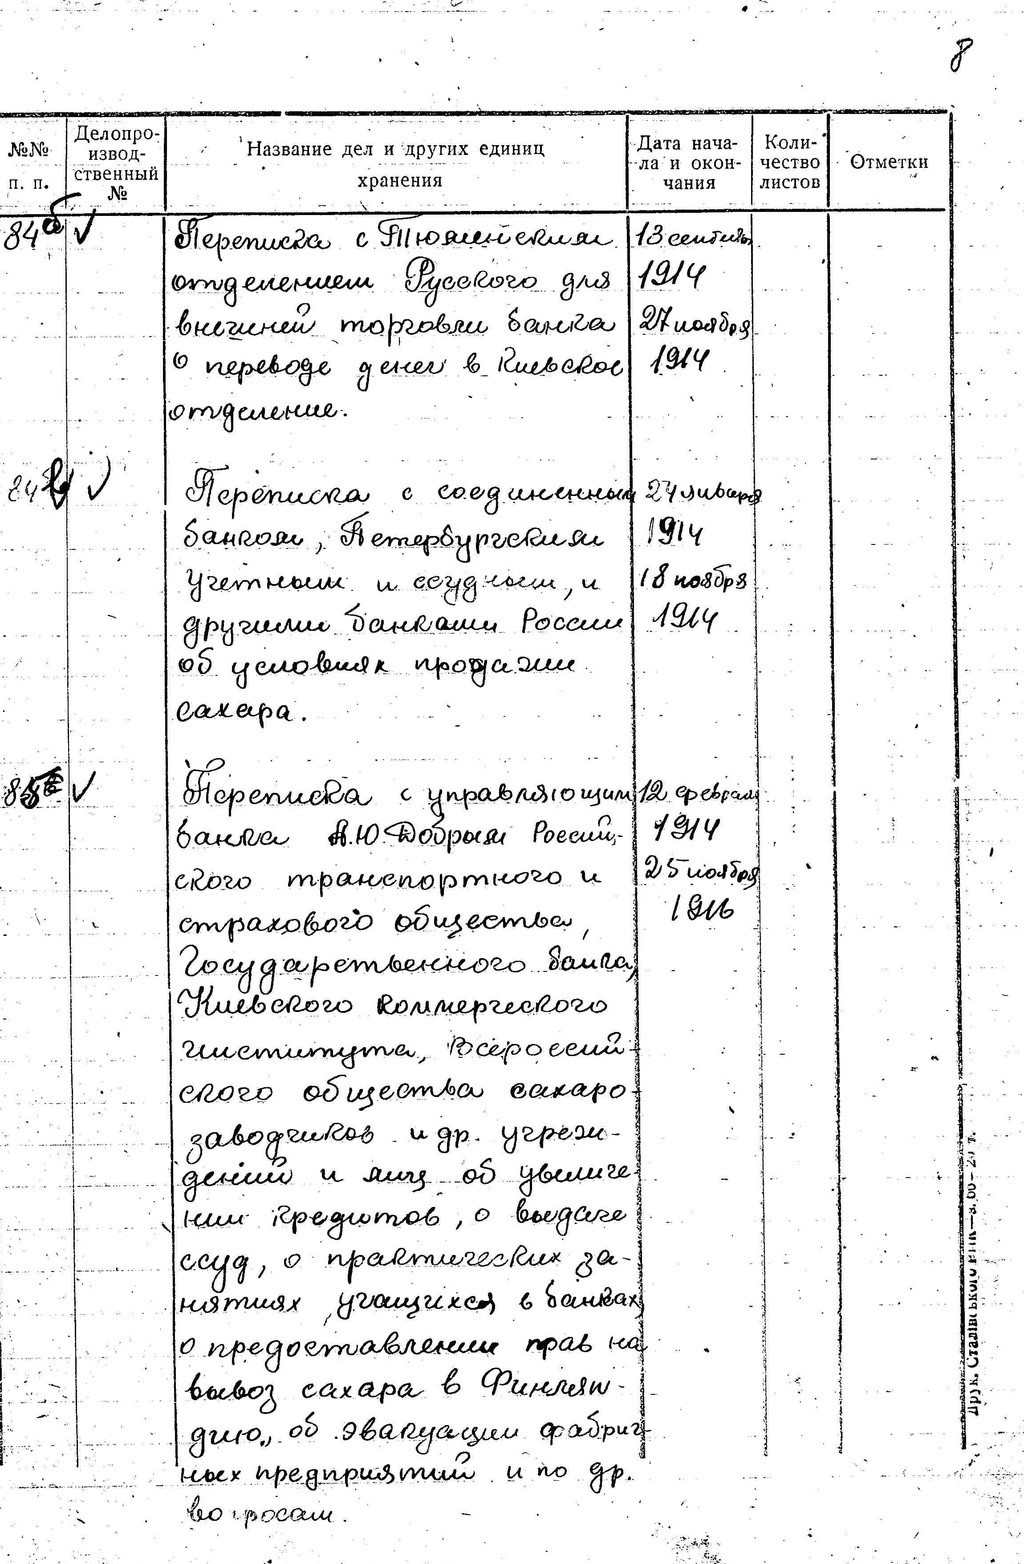 8
№№ п. п.
Делопроизвод-ственный №
Название дел и других единиц хранения
Дата начала и окончания
Количество листов
Отметки
84б ✓ Переписка с Тюменским 13 сентября
отделением Русского для 1914
внешней торговли банка 27 ноября
о переводе денег в Киевское 1914
отделение.
84в ✓ Переписка с соединенным 24 января
банком, Петербургским 1914
учетным и ссудным, и 18 ноября
другими банками России 1914
об условиях продажи
сахара.
85 ✓ Переписка с управляющим 12 февраля
банка А.Ю. Добрым Россий- 1914
ского транспортного и 25 ноября
страхового общества, 1916
Государственного банка,
Киевского коммерческого
института, Всероссий-
ского общества сахаро-
заводчиков и др. учреж-
дений и лиц об увеличе-
нии кредитов, о выдаче
ссуд, о практических за-
нятиях учащихся в банках,
о предоставлении прав на
вывоз сахара в Финлян-
дию, об эвакуации фабрич-
ных предприятий и по др.
вопросам.